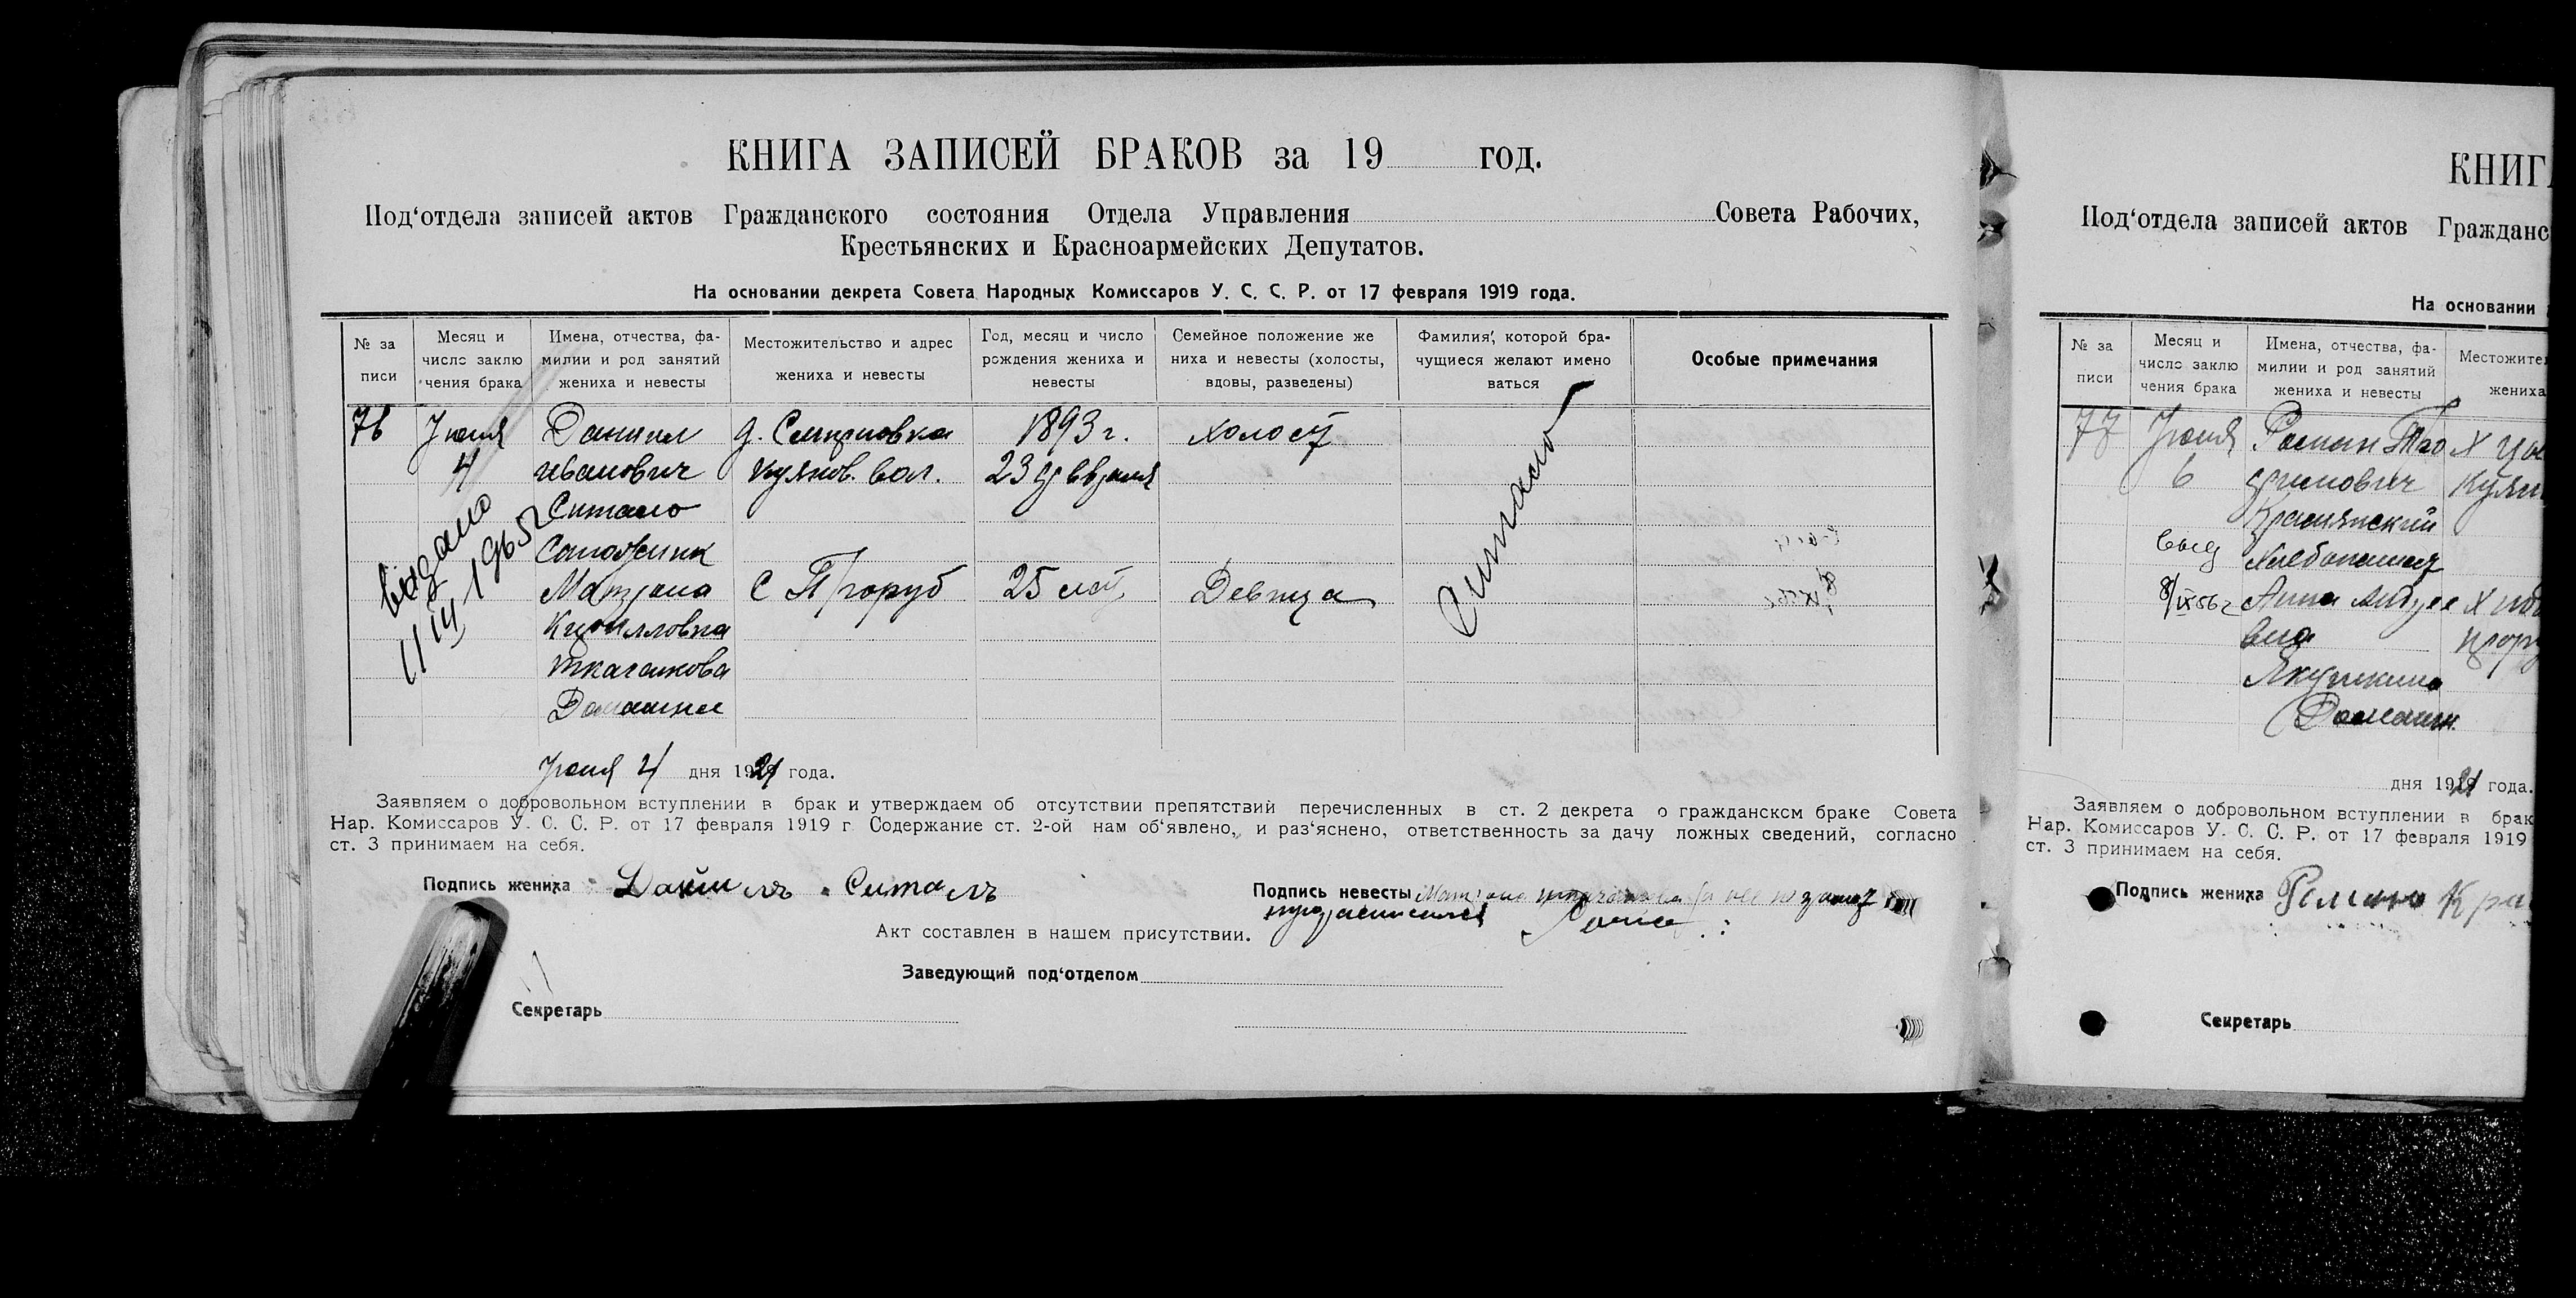 КНИГА ЗАПИСЕЙ БРАКОВ за 19 год.
Под‘отдела записей актов Гражданского состояния Отдела Управления Совета Рабочих,
Крестьянских и Красноармейских Депутатов.
На основании декрета Совета Народных Комиссаров У. С. С. Р. от 17 февраля 1919 года.
№ за писи
Месяц и число заклю чения брака
Имена, отчества, фа- милии и род занятий жениха и невесты
Местожительство и адрес жениха и невесты
Год, месяц и число рождения жениха и невесты
Семейное положение же ниха и невесты (холосты, вдовы, разведены)
Фамилия, которой бра- чущиеся желают имено ваться
Особые примечания
76 Июня Даниил д. 1893 г. холост
4 Иванович Кулнов. вол. 23 февраля
Ситало
Сапожник
Матрона С 25 лет Девица
Кирилловна
Ткаченкова
Домашнее
Ситало
выдано
1965г
Июня 4 дня 1921 года.
Заявляем о добровольном вступлении в брак и утверждаем об отсутствии препятствий перечисленных в ст. 2 декрета о гражданском браке Совета
Нар. Комиссаров У. С. С. Р. от 17 февраля 1919 г. Содержание ст. 2-ой нам об‘явлено, и раз‘яснено, ответственность за дачу ложных сведений, согласно
ст. 3 принимаем на себя.
Подпись жениха Данилъ Ситалъ
Подпись невесты Матрона
Акт составлен в нашем присутствии.
Заведующий под‘отделом
Секретарь
КНИГ
Под‘отдела записей актов Гражданс
На основании
№ за писи
Месяц и число заклю чения брака
Имена, отчества, фа- милии и род занятий жениха и невесты
Местожите жениха
77 Июня Роман
6
Хлебопашец
8/IX 56г Анна Андрее
вна
Якушкина
Домашн.
дня 1921 года.
Заявляем о добровольном вступлении в брак
Нар. Комиссаров У. С. С. Р. от 17 февраля 1919
ст. 3 принимаем на себя.
Подпись жениха Романъ Кра
Секретарь